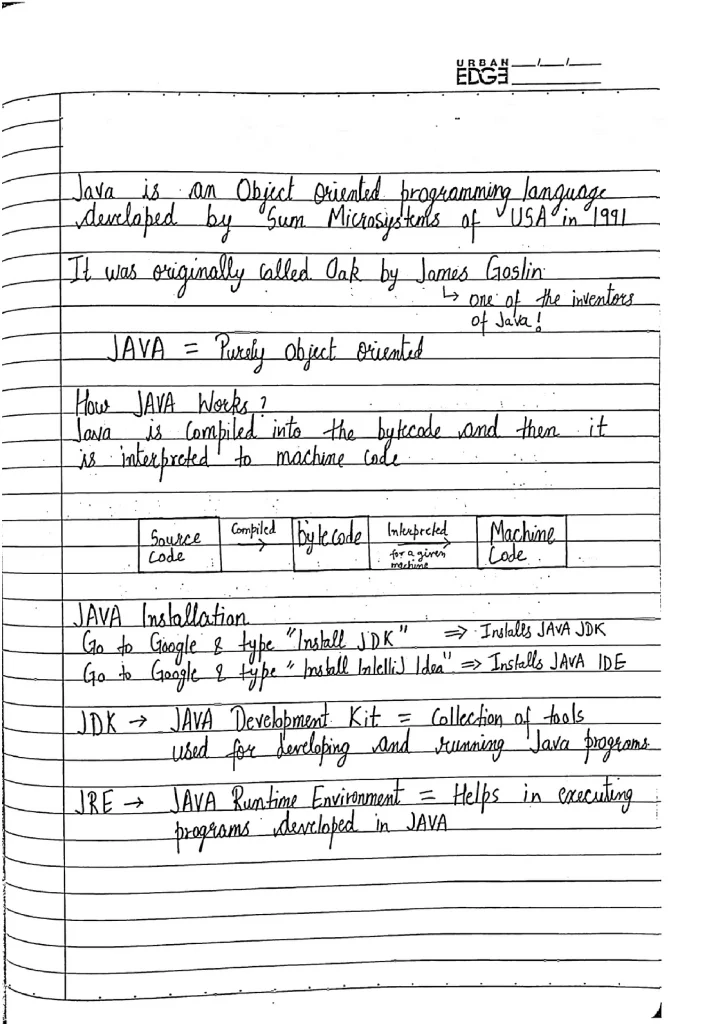 URBAN
EDGE
Java is an Object Oriented programming language
developed by Sum Microsystems of USA in 1991
It was originally called Oak by James Goslin
↳ one of the inventors
of Java!
JAVA = Purely object oriented
How JAVA Works?
Java is compiled into the bytecode and then it
is interpreted to machine code.
Source Code
Compiled →
bytecode
Interpreted → for a given machine
Machine Code
JAVA Installation
Go to Google & type "Install JDK" ⇒ Installs JAVA JDK
Go to Google & type "Install IntelliJ Idea" ⇒ Installs JAVA IDE
JDK → JAVA Development Kit = Collection of tools
used for developing and running Java programs
JRE → JAVA Runtime Environment = Helps in executing
programs developed in JAVA